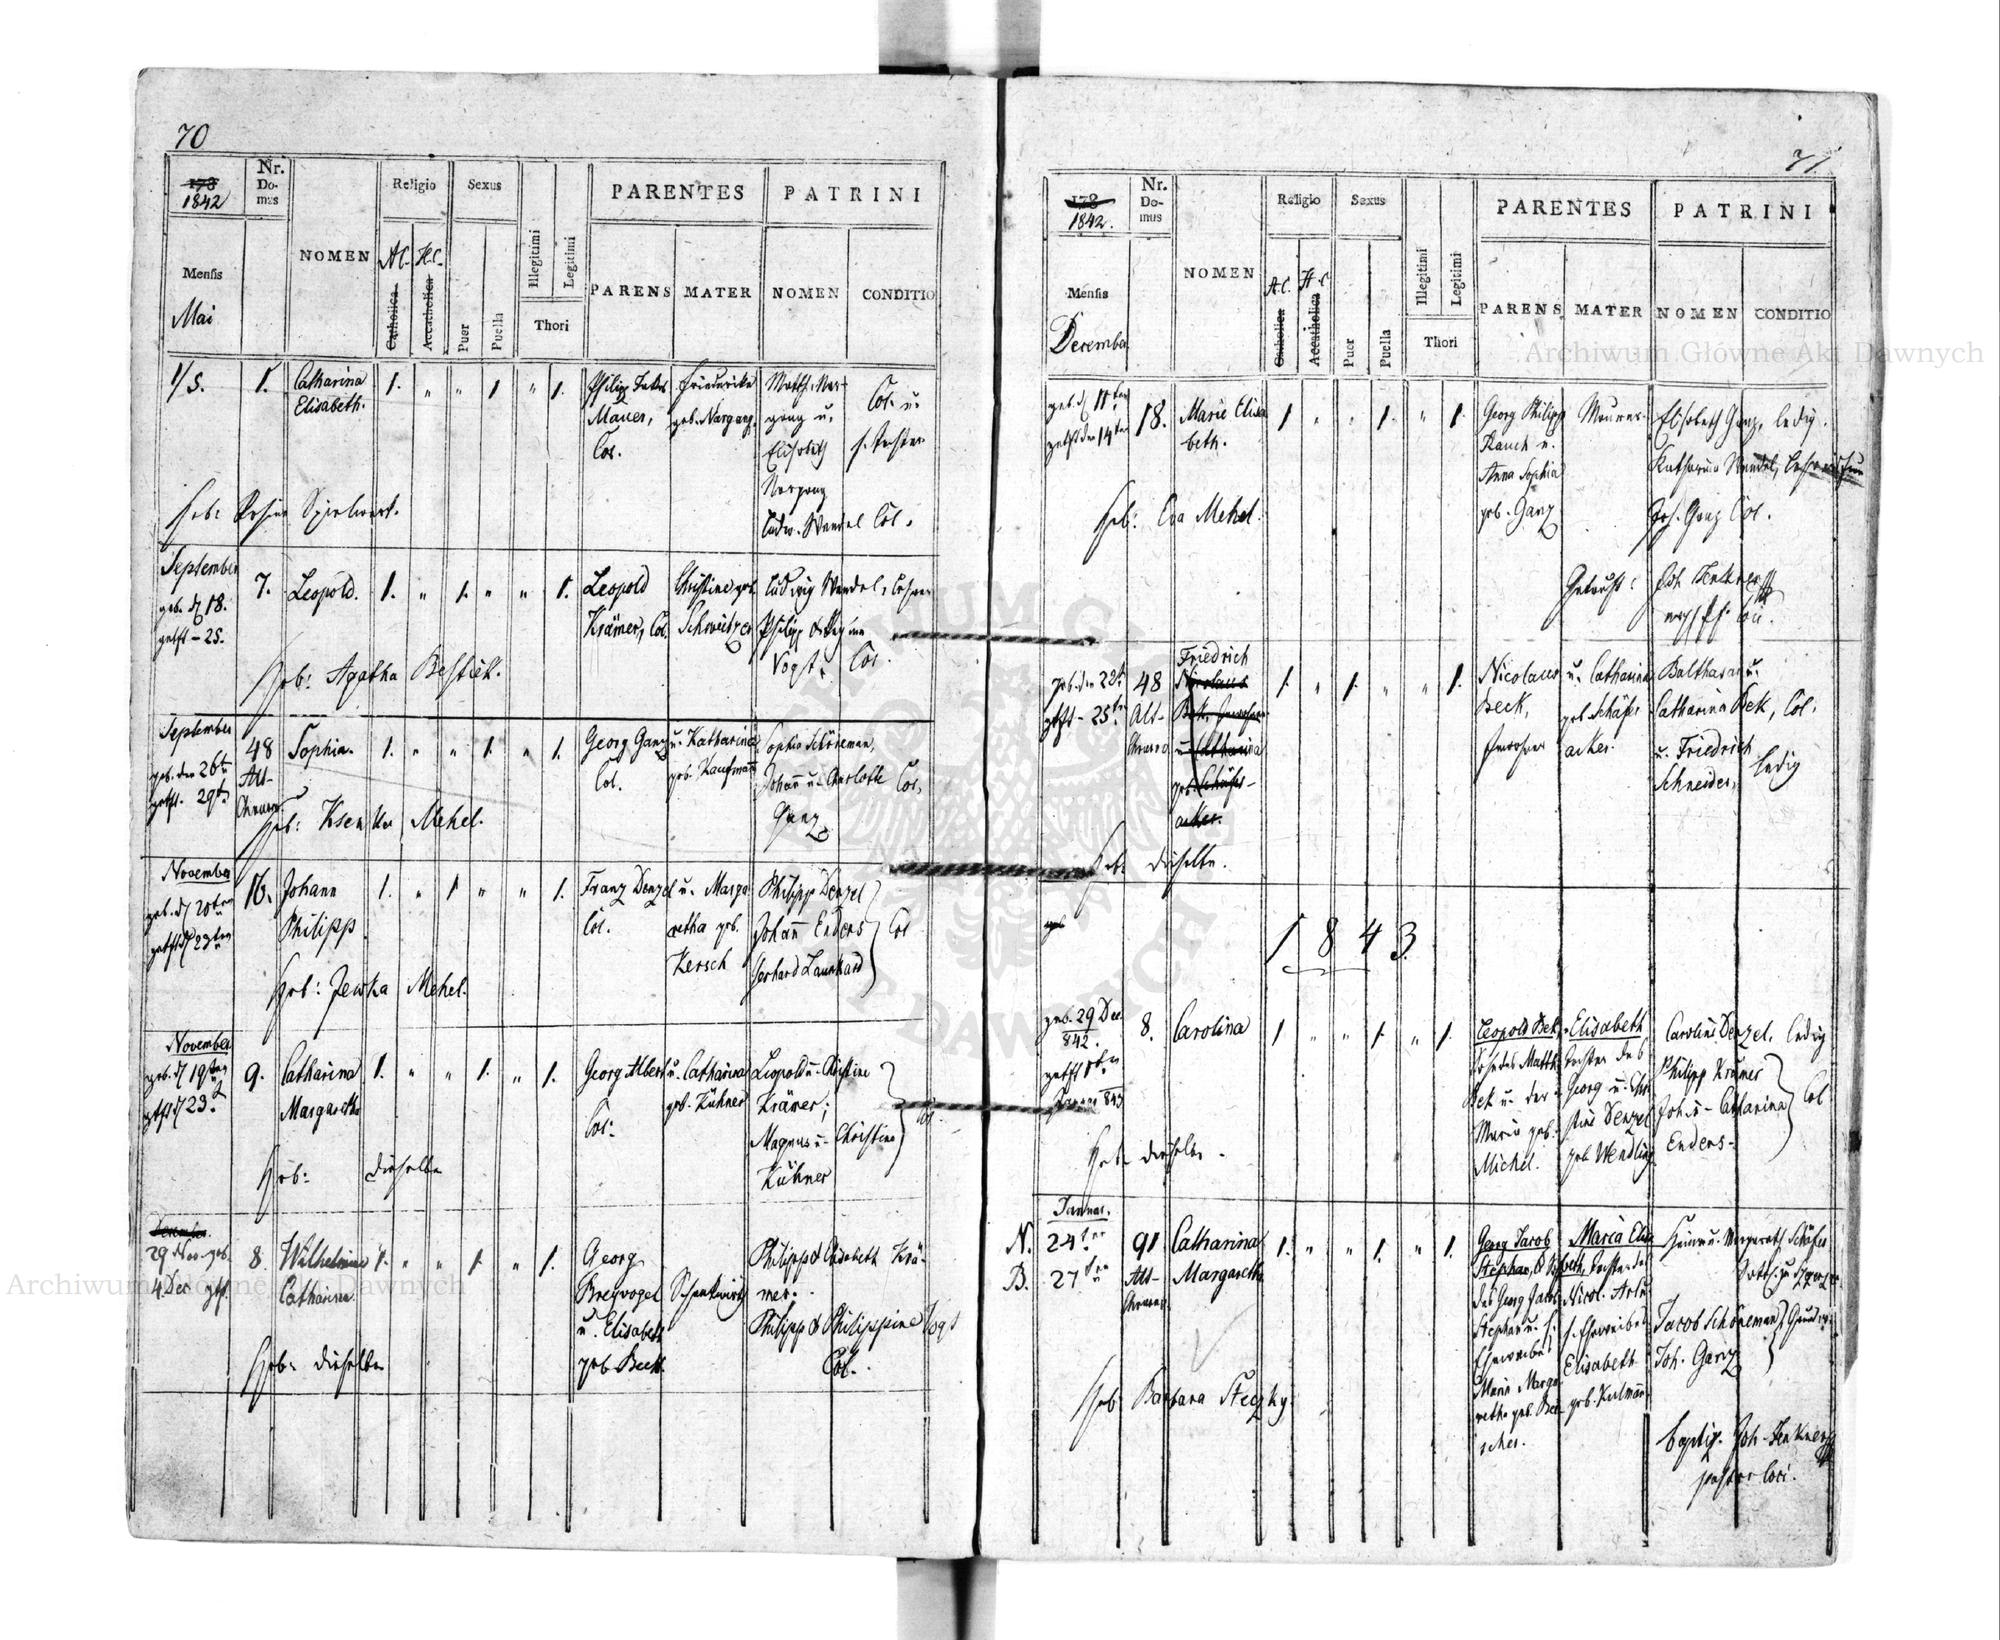 70
178
1842
Nr.
Do-
mus
NOMEN
Religio
Sexus
A.C.
H.C.
Catholica
Accatholica
Puer
Puella
Illegitimi
Legitimi
Thori
PARENTES
PATRINI
PARENS
MATER
NOMEN
CONDITIO
Mensis
Mai
1/5.
1.
Catharina
Elisabeth.
1.
"
"
1
"
1.
Philip
Mauer,
Col.
Friederike
geb. Nargang
Matth. Nar-
gang u.
Elisabeth
Nargang
Ludw. Wendel Col.
Col. u.
s. Tochter
Heb:
September
geb. d 18.
getft - 25.
7.
Leopold.
1.
"
1.
"
"
1.
Leopold
Krämer, Col.
Christine geb.
Schweitzer
Ludwig Wendel, Lehrer
Philipp & Regina
Vogt, Col.
Heb: Agatha
September
geb. den 26ten
getft. 29ten
48
Alt-
Sophia.
1.
"
"
1.
"
1.
Georg Ganz
Col.
u. Katharina
geb. Kaufmann
Sophia Schöneman,
Johann u. Charlotte Col.
Ganz
Heb: Mehel.
November
geb. d 20ten
getft d 23ten
16.
Johann
Philipp
1.
"
1
"
"
1.
Franz Denzel
Col.
u. Marga
retha geb.
Kersch
Philipp Denzel
Johann Enders
Gerhard Launhard
Col
Heb: Jewka Mehel.
November
geb. d 19ten
getft d 23.
9.
Catharina
Margaretha
1.
"
"
1.
"
1.
Georg Albert
Col.
u. Catharina
geb. Kühner
Leopold u. Christine
Krämer;
Magnus u. Christine
Kühner
Col.
Heb: dieselbe
December
29 Nov. geb.
4 Dec gtf.
8.
Wilhelmine
Catharina
1.
"
"
1.
"
1.
Georg
Breyvogel
u. Elisabeth
geb. Beck.
Schankwirth
Philipp & Elisabeth Krä-
mer.
Philipp & Philippine Vogt
Col.
Heb: dieselbe
71
178
1842.
Nr.
Do-
mus
NOMEN
Religio
Sexus
A.C.
H.C
Catholica
Accatholica
Puer
Puella
Illegitimi
Legitimi
Thori
PARENTES
PATRINI
PARENS
MATER
NOMEN
CONDITIO
Mensis
December
geb. d 11ten
getft den 14ten
18.
Marie Elisa
beth.
1
"
"
1.
"
1.
Georg Philipp
Rauch u.
Anna Sophia
geb. Ganz
Maurer.
Elisabeth Ganz, ledig.
Katharina Wendel,
Joh. Ganz Col.
Heb: Eva Mehel.
Getauft:
Joh. Jenkner
geb. den 22t
getft - 25ten
48
Alt-
Friedrich
Nicolaus
1.
"
1.
"
"
1.
Nicolaus
Beck,
u. Catharina
geb. Schäfer
acker.
Balthasar u.
Catharina Bek, Col.
u. Friedrich
Schneider,
ledig
Heb. dieselbe.
geb
1843
geb. 29 Dec
842.
getft 1ten
Januar 843
8.
Carolina
1
"
"
1.
"
1.
Leopold Bek,
Sohn des Matth.
Bek u. der
Maria geb.
Michel.
Elisabeth
Tochter des
Georg u. Chri
stine Denzel
geb Wendling
Caroline Denzel, ledig
Philipp Krämer
Joh. u. Catharina
Enders.
Col
Heb. dieselbe.
Januar.
N. 24ten
B. 27ten
91
Alt-
Catharina
Margaretha
1.
"
"
1.
"
1.
Georg Jacob
Stephan,
des Georg Jacob
Stephan u. s.
Eheweibes
Maria Marga
retha geb.
Maria Elisa
beth, Tochter des
Nicol.
s. Eheweibes
Elisabeth
geb. Kulman
Margareth Schäfer
Jacob Schöneman
Joh. Ganz
Heb: Barbara Steczky.
Baptiz. Joh. Jenkner
pastor loci.
Archiwum Główne Akt Dawnych
Archiwum Główne Akt Dawnych
ARCHIWUM GŁÓWNE AKT DAWNYCH